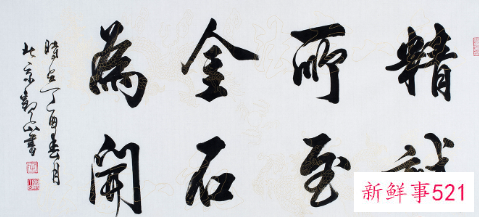 精誠
所至
金石
為開
時在丁酉春月
北京山書
新鲜事521